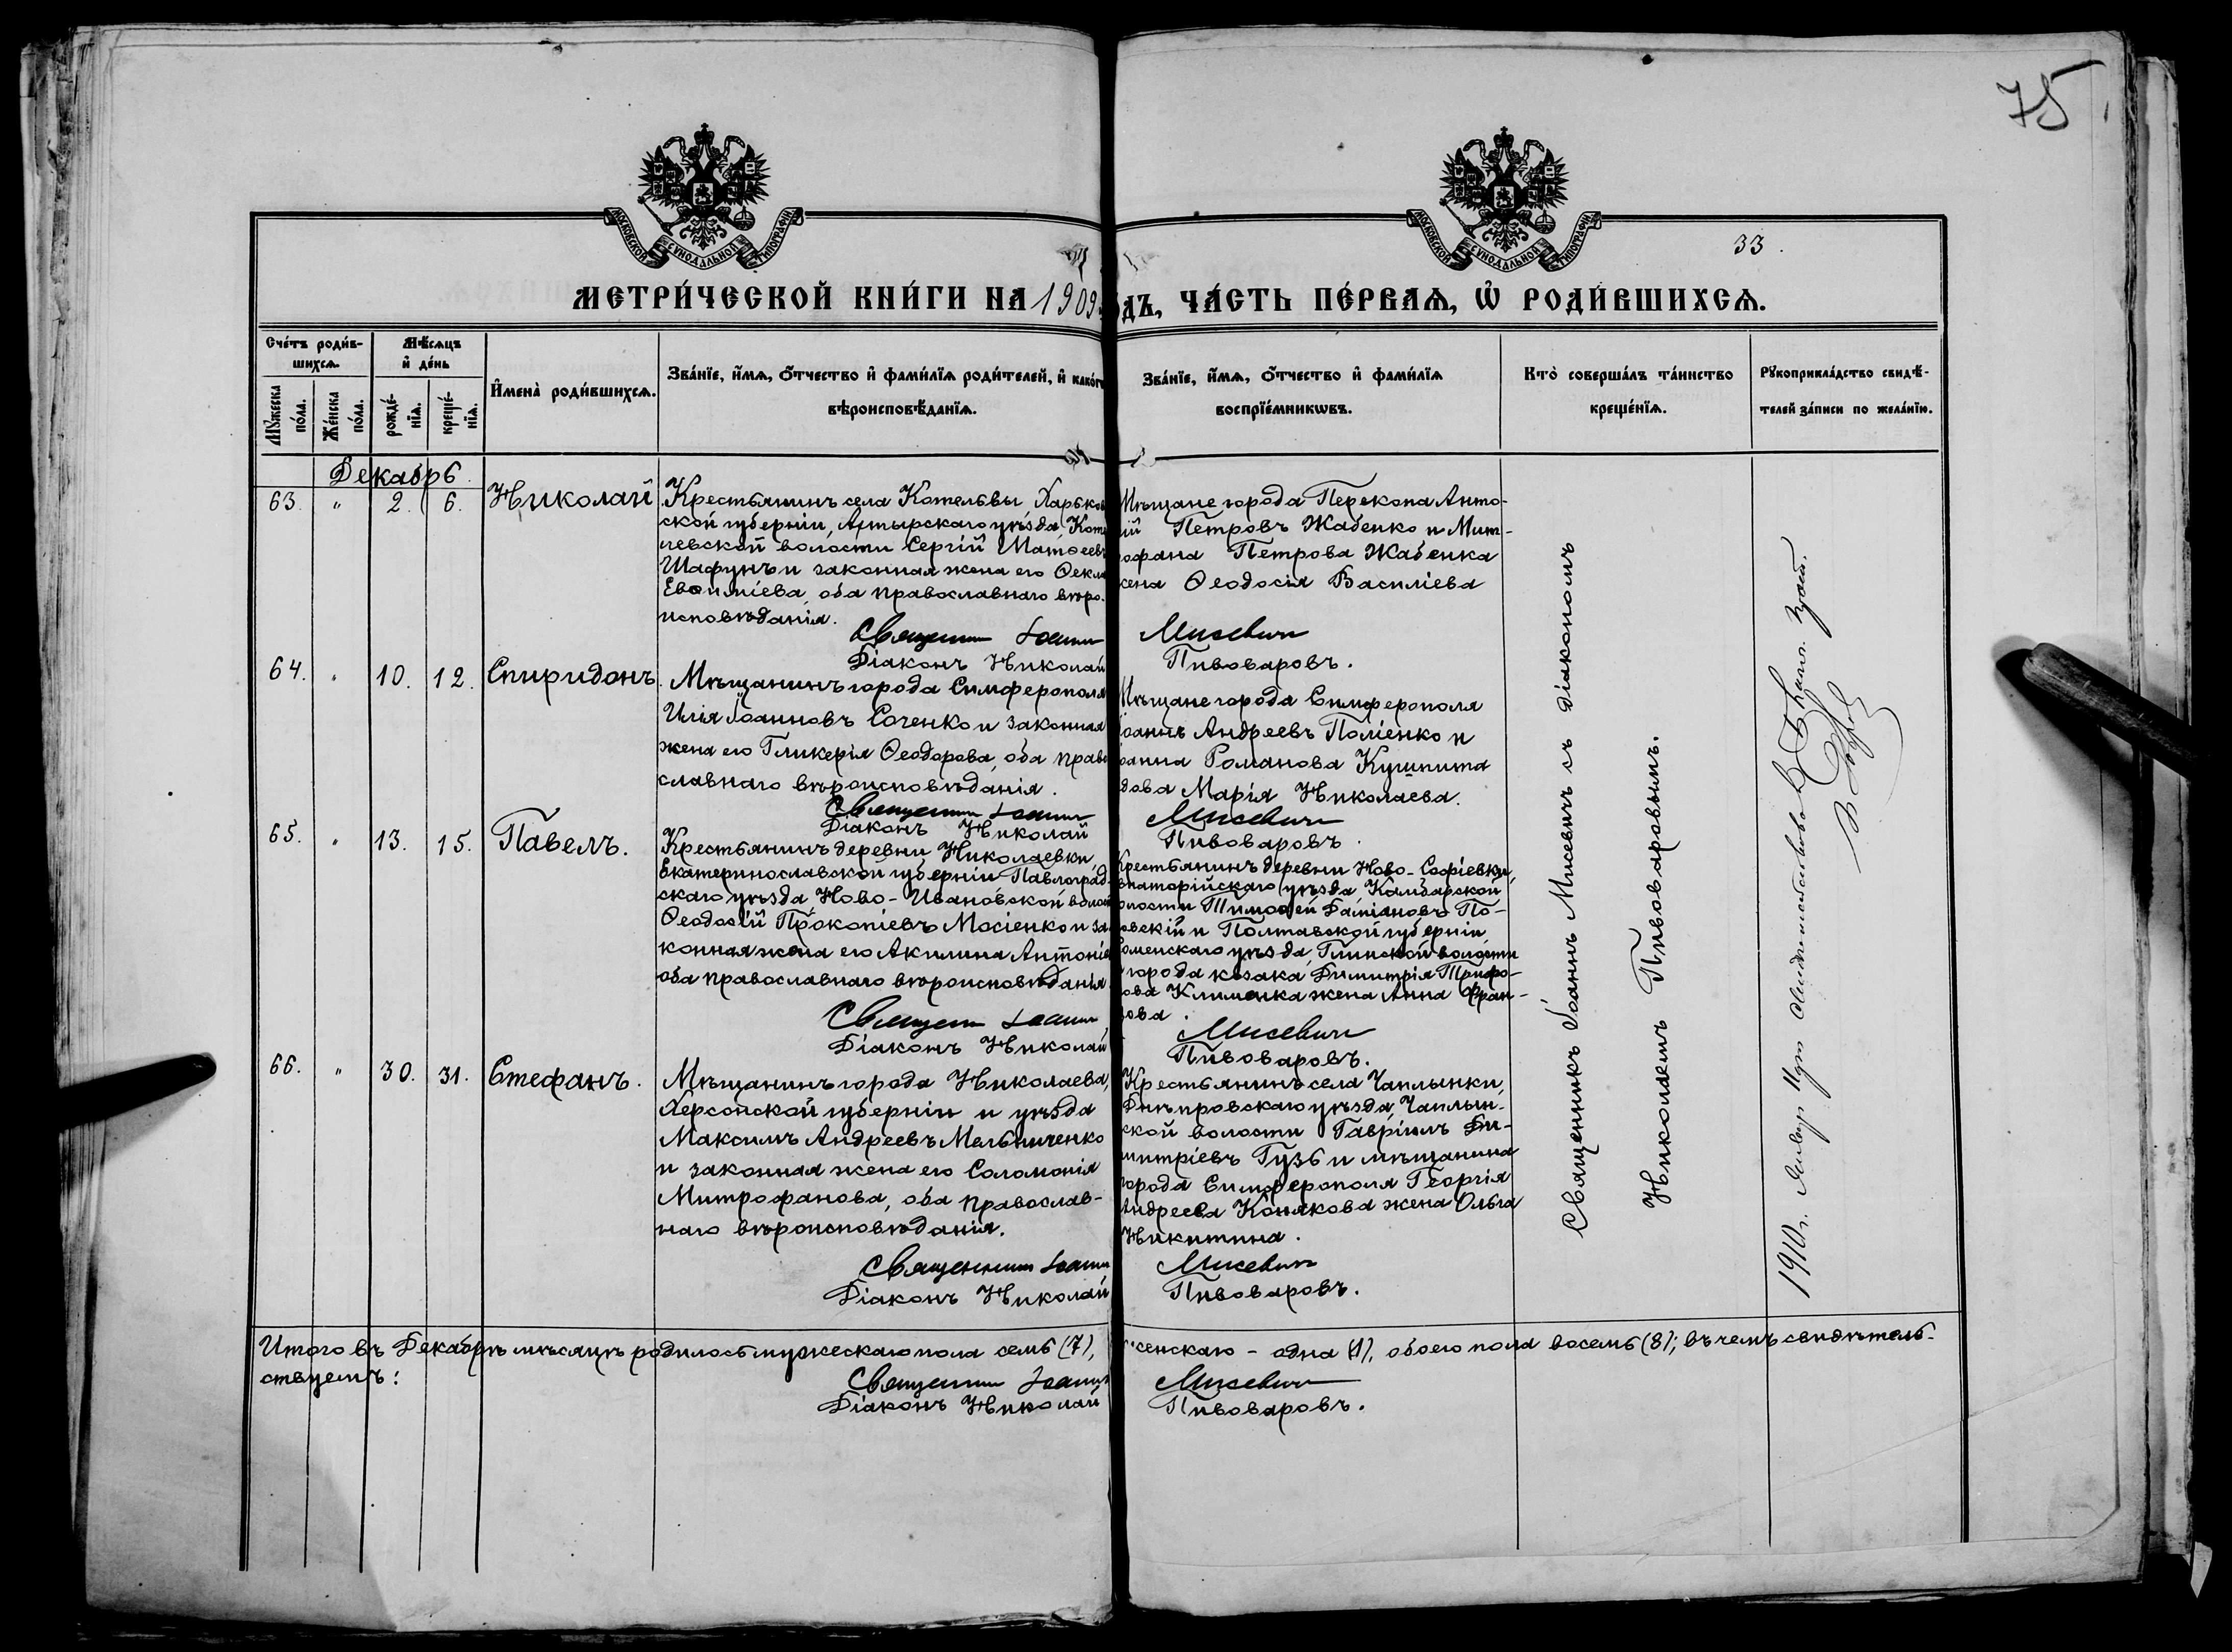 75
33.
МОСКОВСКОЙ СѴНОДАЛЬНОЙ ТИПОГРАФІИ
МОСКОВСКОЙ СѴНОДАЛЬНОЙ ТИПОГРАФІИ
МЕТРИ́ЧЕСКОЙ КНИ́ГИ НА 1909 ОДЪ, ЧА́СТЬ ПЕ́РВАѦ, Ѽ РОДИ́ВШИХСѦ.
Сче́тъ роди́в-
шихсѧ.
Мꙋ́жеска по́ла.
Же́нска по́ла.
Мѣ́сяцъ
и҆ де́нь
рожде́-
нїѧ.
креще́-
нїѧ.
И҆мена̀ роди́вшихсѧ.
Зва́нїе, и҆́мѧ, ѻ҆́тчество и҆ фами́лїѧ роди́телей, и҆ како́г
вѣроисповѣ́данїѧ.
Зва́нїе, и҆́мѧ, ѻ҆́тчество и҆ фами́лїѧ
воспрїе́мникѡвъ.
Кто̀ соверша́лъ та́инство
креще́нїѧ.
Рꙋкоприкла́дство свидѣ́-
телей за́писи по жела́нїю.
Декабрь
63. " 2. 6. Николай
Крестьянинъ села Котельвы, Харьков
ской губерніи, Ахтырскаго уѣзда, Коте
левской волости Сергій Матѳеевъ
Шафунъ и законная жена его Ѳекла
Евѳиміева, оба православнаго вѣро-
исповѣданія.
Священникъ Іоаннъ
Діаконъ Николай
Мѣщане города Перекопа Анто-
ній Петровъ Жабенко и Мит-
рофана Петрова Жабенка
жена Ѳеодосія Василіева
Мисевичъ
Пивоваровъ.
64. " 10. 12. Спиридонъ.
Мѣщанинъ города Симферополя
Илія Іоанновъ Соченко и законная
жена его Гликерія Ѳеодорова, оба право
славнаго вѣроисповѣданія.
Священникъ Іоаннъ
Діаконъ Николай
Мѣщане города Симферополя
Іоаннъ Андреевъ Поліенко и
Іоанна Романова Кушпита
вдова Марія Николаева.
Мисевичъ
Пивоваровъ.
65. " 13. 15. Павелъ.
Крестьянинъ деревни Николаевки,
Екатеринославской губерніи Павлоград-
скаго уѣзда, Ново-Ивановской волост
Ѳеодосій Прокопіевъ Мосіенко и за
конная жена его Акилина Антоніев
оба православнаго вѣроисповѣданія
Священникъ Іоаннъ
Діаконъ Николай
Крестьянинъ деревни Ново-Софіевки,
Евпаторійскаго уѣзда, Камбарской
волости Тимоѳей Даміановъ По-
овскій и Полтавской губерніи
Роменскаго уѣзда, Глинской волости
города козака Димитрія Трифо-
нова Клименка жена Анна Фран-
цова.
Мисевичъ
Пивоваровъ.
66. " 30. 31. Стефанъ.
Мѣщанинъ города Николаева,
Херсонской губерніи и уѣзда
Максимъ Андреевъ Мельниченко
и законная жена его Соломонія
Митрофанова, оба православ-
наго вѣроисповѣданія.
Священникъ Іоаннъ
Діаконъ Николай
Крестьянинъ села Чаплынки,
Днѣпровскаго уѣзда, Чаплын-
ской волости Гавріилъ Ди-
митріевъ Гузь и мѣщанина
города Симферополя Георгія
Андреева Конякова жена Ольга
Никитина.
Мисевичъ
Пивоваровъ.
Священникъ Іоаннъ Мисевичъ съ діакономъ
Николаемъ Пивоваровымъ.
1910 г. Январ 11 дня Свидетельствовалъ
Итого въ Декабрѣ мѣсяцѣ родилось мужескаго пола семь (7), женскаго - одна (1), обоего пола восемь (8); въ чемъ свидѣтель-
ствуемъ:
Священникъ Іоаннъ Мисевичъ
Діаконъ Николай Пивоваровъ.